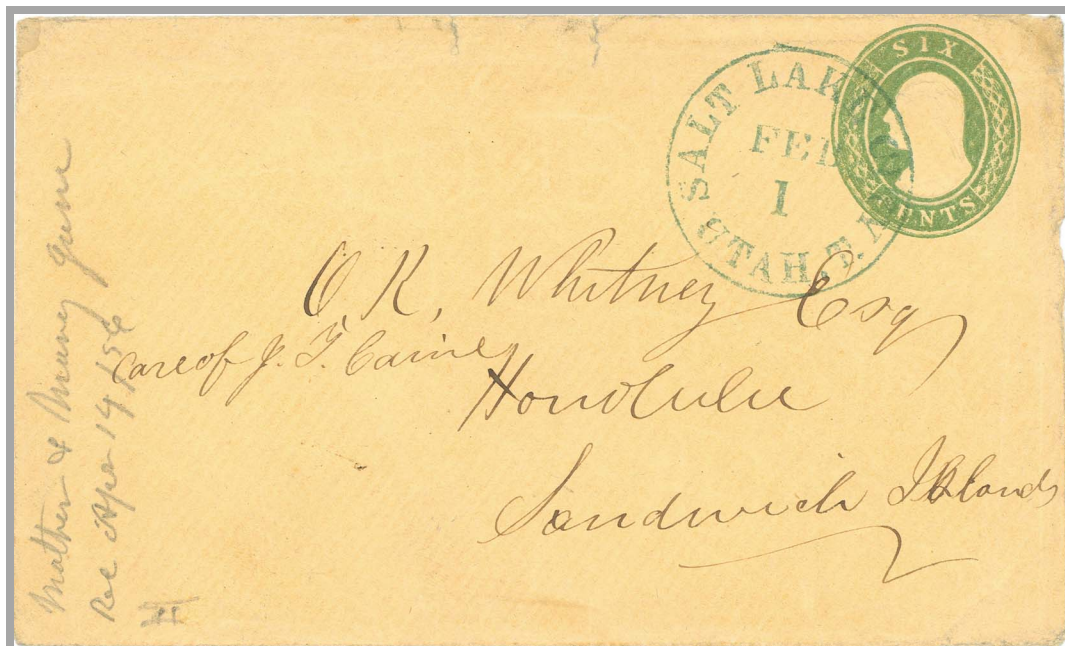 SIX
CENTS
SALT LAKE CI
FEB
1
UTAH.T.
O. K. Whitney Esq
care of J. T. Caine
Honolulu
Sandwich Islands
Mother & Mary Jane
Rec Apr 19/56
II